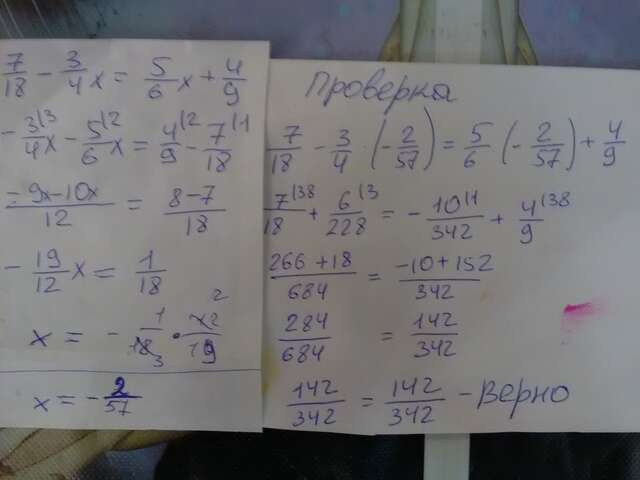 7/18 - 3/4x = 5/6x + 4/9
- 3/4x |3 - 5/6x |2 = 4/9 |2 - 7/18 |1
= 9x-10x/12 = 8-7/18
- 19/12 x = 1/18
x = - 1/18 3 · 12 2/19
x = - 2/57
Проверка
7/18 - 3/4 · (- 2/57) = 5/6 (- 2/57) + 4/9
7/18 |38 + 6/228 |3 = - 10/342 |1 + 4/9 |38
266 + 18/684 = -10 + 152/342
284/684 = 142/342
142/342 = 142/342 - верно